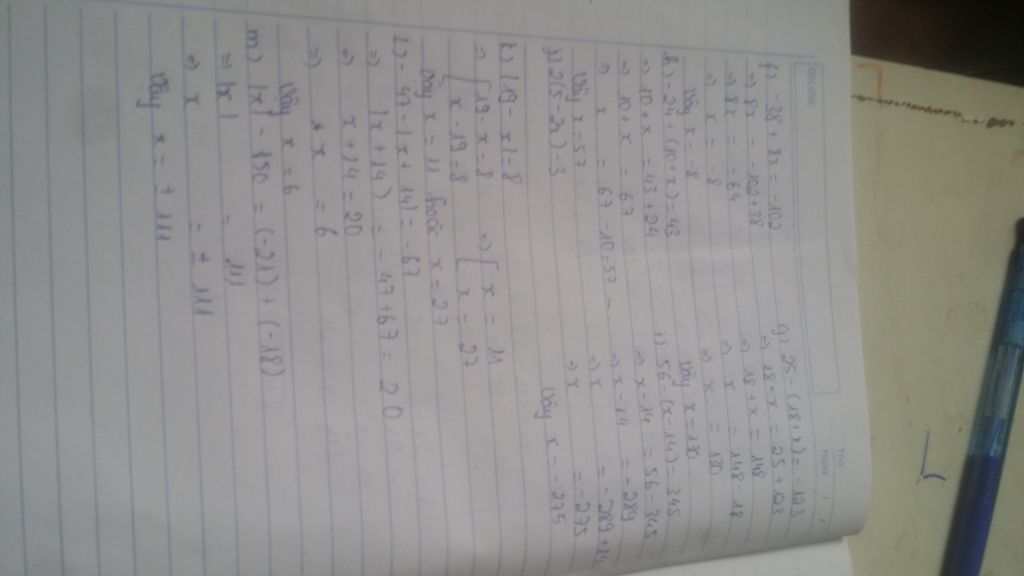 f) -38 + 8x = -102
⇒ 8x = -102 + 38
⇒ 8x = -64
⇒ x = -8
Vậy x = -8
g) 25 - (18 + x) = -123
⇒ 18 - x = 25 + 123
⇒ 18 + x = 148
⇒ x = 148 - 18
⇒ x = 130
Vậy x = 130
h) -24 + (10 + x) = 43
⇒ 10 + x = 43 + 24
⇒ 10 + x = 67
⇒ x = 67 - 10 = 57
Vậy x = 57
i) 56 - (x - 14) = 345
⇒ x - 14 = 56 - 345
⇒ x - 14 = -289
⇒ x = -289 + 14
⇒ x = -275
Vậy x = -275
j) 2(5 - 2x) - 3
k) |19 - x| = 8
⇒ [ 19 - x = 8 ⇒ [ x = 11
x - 19 = 8 x = 27
Vậy x = 11 hoặc x = 27
l) -47 - |x + 14| = -67
⇒ |x + 14| = -47 + 67 = 20
⇒ x + 14 = 20
⇒ x = 6
Vậy x = 6
m) |x| - 150 = (-21) + (-18)
⇒ |x| = 111
⇒ x = ± 111
Vậy x = ± 111